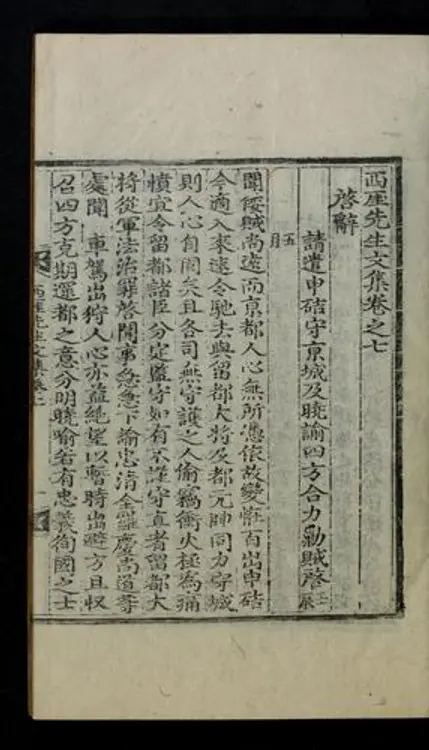 西厓先生文集卷之七
啓辭
請遣申硈守京城及曉諭四方合力勦賊啓 壬辰五月
聞倭賊尚遠而京都人心無所憑依故變恠百出申硈
今適入來速令馳去與留都大將及都元帥同力守城
則人心自固矣且各司無守護之人偷竊衝火極爲痛
憤宜令留都諸臣分定監守如有不謹守直者留都大
將從軍法治罪啓聞事急急下諭忠清全羅慶尚道等
處聞 車駕出狩人心亦益絶望以暫時出避方且収
召四方克期還都之意分明曉喻若有忠義徇國之士
西厓先生文集卷七